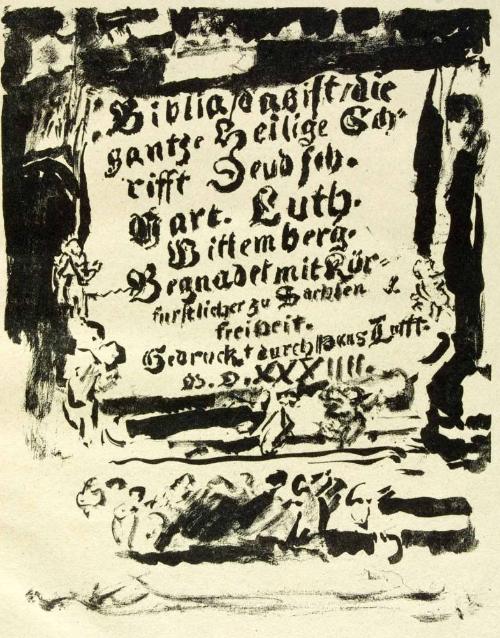 Biblia/das ist/die
gantze Heilige Sch-
rifft Deudsch.
Mart. Luth.
Wittemberg.
Begnadet mit Kür-
fürstlicher zu Sachsen
freiheit.
Gedruckt durch Hans Lufft.
M. D. XXXIIII.